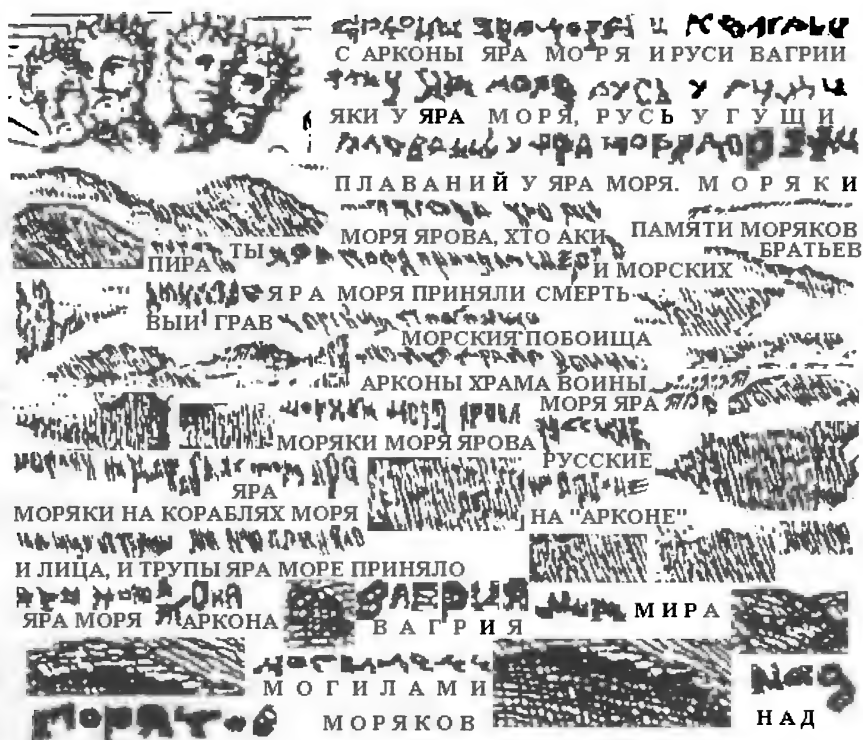 С АРКОНЫ ЯРА МОРЯ И РУСИ ВАГРИИ
ЯКИ У ЯРА МОРЯ, РУСЬ У ГУЩИ
ПЛАВАНИЙ У ЯРА МОРЯ. МОРЯКИ
МОРЯ ЯРОВА, ХТО АКИ
ПАМЯТИ МОРЯКОВ
БРАТЬЕВ
ПИРАТЫ
И МОРСКИХ
ЯРА МОРЯ ПРИНЯЛИ СМЕРТЬ
ВЫИГРАВ
МОРСКИЯ ПОБОИЩА
АРКОНЫ ХРАМА ВОИНЫ
МОРЯ ЯРА
МОРЯКИ МОРЯ ЯРОВА
РУССКИЕ
ЯРА
МОРЯКИ НА КОРАБЛЯХ МОРЯ
НА "АРКОНЕ"
И ЛИЦА, И ТРУПЫ ЯРА МОРЕ ПРИНЯЛО
ЯРА МОРЯ АРКОНА
ВАГРИЯ
МИРА
МОГИЛАМИ
МОРЯКОВ
НАД